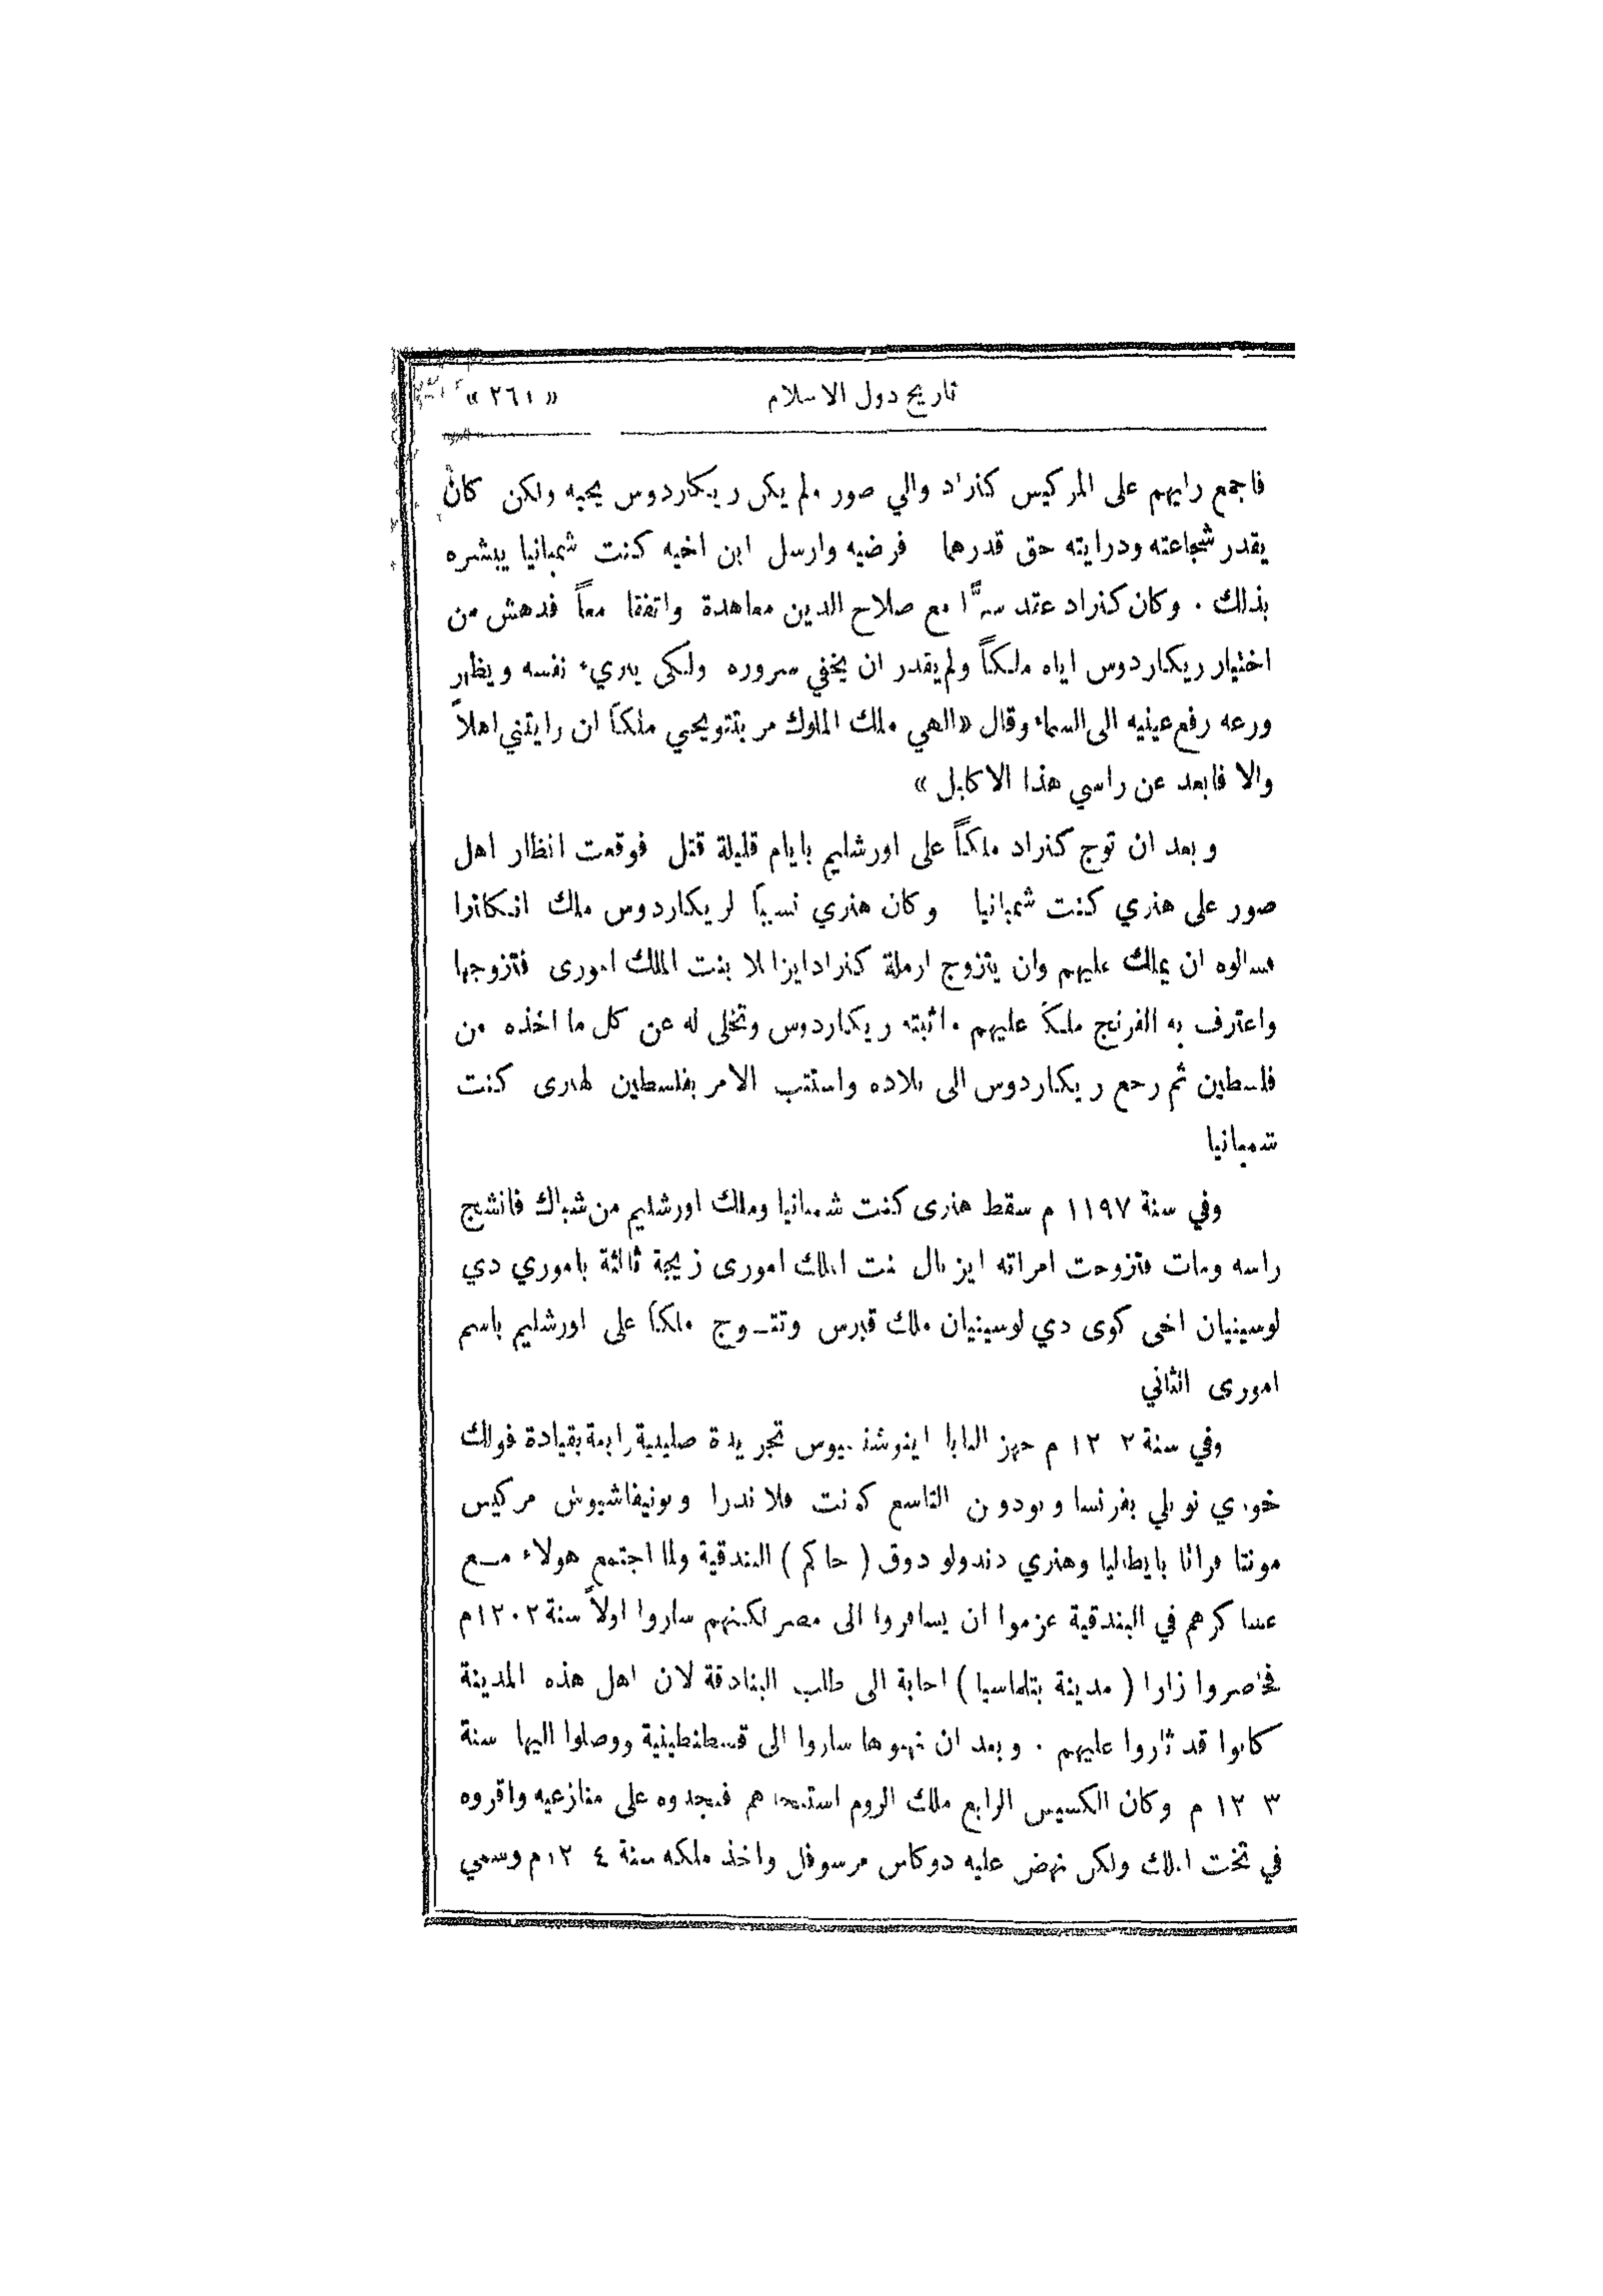 تاريخ دول الاسلام « ٢٦١ »
فاجمع رايهم على المركيس كنراد والي صور ولم يكن ريكاردوس يحبه ولكن كان
يقدر شجاعته ودرايته حق قدرهما فرضيه وارسل ابن اخيه كنت شمبانيا يبشره
بذلك . وكان كنراد عقد سرًّا مع صلاح الدين معاهدة واتفقا معاً فدهش من
اختيار ريكاردوس اياه ملكاً ولم يقدر ان يخفي سروره ولكى يبريء نفسه ويظهر
ورعه رفع عينيه الى السماء وقال « الهي ملك الملوك مر بتتويجي ملكاً ان رايتني اهلاً
والا فابعد عن راسي هذا الاكليل »
وبعد ان توج كنراد ملكاً على اورشليم بايام قليلة قتل فوقعت انظار اهل
صور على هنري كنت شمبانيا وكان هنري نسيباً لريكاردوس ملك انكلترا
فسالوه ان يملك عليهم وان يتزوج ارملة كنراد ايزابلا بنت الملك امورى فتزوجها
واعترف به الفرنج ملكاً عليهم واثبته ريكاردوس وتخلى له عن كل ما اخذه من
فلسطين ثم رجع ريكاردوس الى بلاده واستتب الامر بفلسطين لهنرى كنت
شمبانيا
وفي سنة ١١٩٧ م سقط هنرى كنت شمبانيا وملك اورشليم من شباك فانشج
راسه ومات فتزوجت امراته ايزبال بنت الملك امورى زيجة ثالثة باموري دي
لوسينيان اخى كوى دي لوسينيان ملك قبرس وتتـوج ملكاً على اورشليم باسم
امورى الثاني
وفي سنة ١٢٠٢ م جهز البابا اينوشنسيوس تجريدة صليبية رابعة بقيادة فولك
خوري نويلي بفرنسا وبودوين التاسع كونت فلاندرا وبونيفاشيوش مركيس
مونتا فراتا بايطاليا وهنري دندولو دوق ( حاكم ) البندقية ولما اجتمع هولاء مـع
عساكرهم في البندقية عزموا ان يسافروا الى مصر لكنهم ساروا اولاً سنة ١٢٠٢م
فحاصروا زارا ( مدينة بتلماسيا ) اجابة الى طلب البنادقة لان اهل هذه المدينة
كانوا قد ثاروا عليهم . وبعد ان نهبوها ساروا الى قسطنطينية ووصلوا اليها سنة
١٢٠٣ م وكان الكسيس الرابع ملك الروم استنجدهم فنجدوه على منازعيه واقروه
في تخت الملك ولكن نهض عليه دوكاس مرسوفل واخذ ملكه سنة ١٢٠٤م وسمي